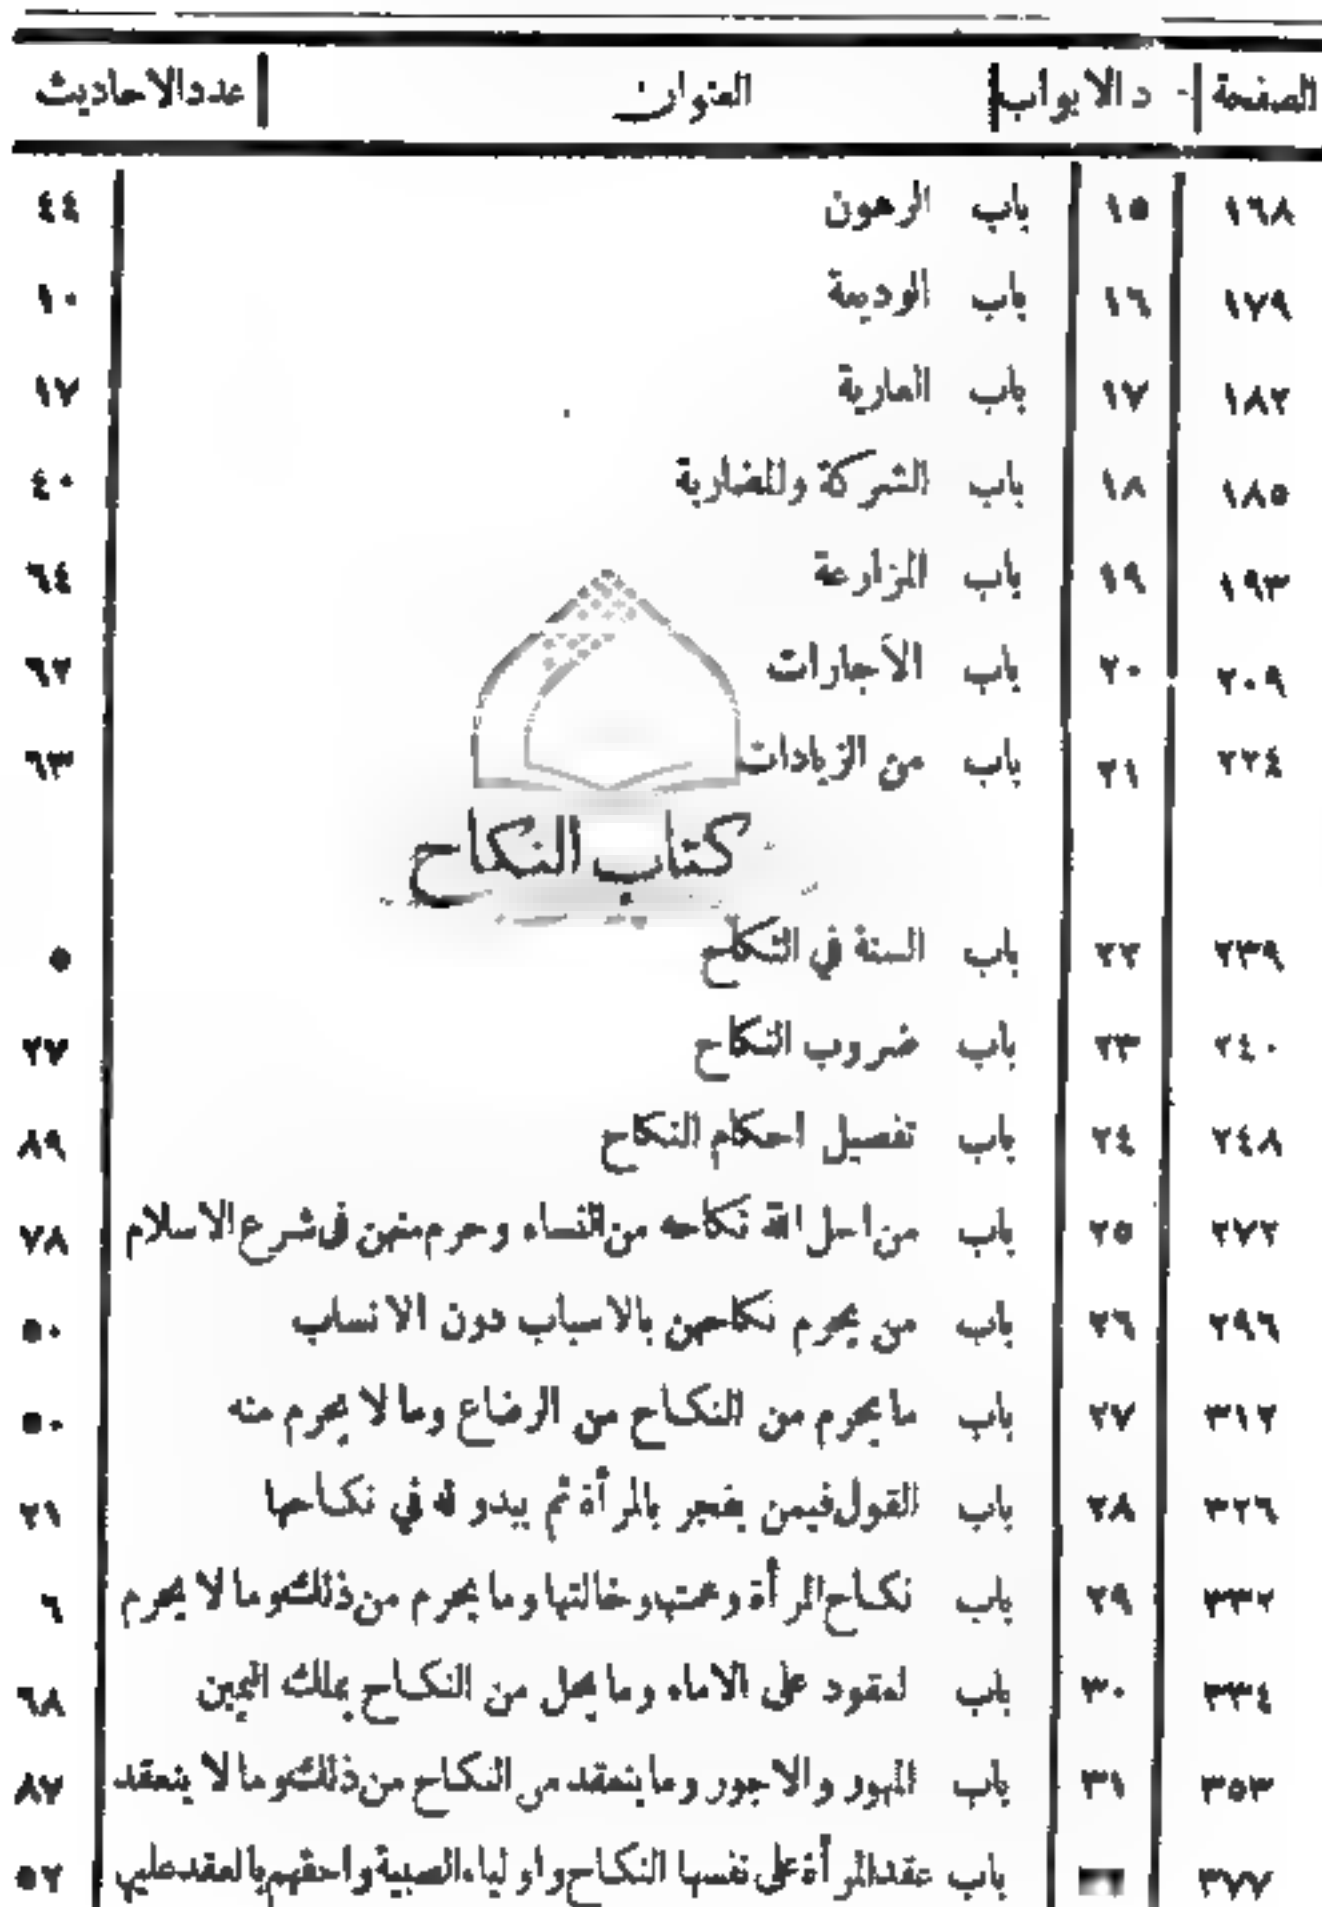 الصفحة | د الابواب | العنوان | عدد الاحاديث
١٦٨ ١٥ باب الرهون ٤٤
١٧٩ ١٦ باب الوديعة ١٠
١٨٢ ١٧ باب العارية ١٧
١٨٥ ١٨ باب الشركة والمضاربة ٤٠
١٩٣ ١٩ باب المزارعة ٦٤
٢٠٩ ٢٠ باب الأجارات ٦٢
٢٢٤ ٢١ باب من الزيادات ٦٣
كتاب النكاح
٢٣٩ ٢٢ باب السنة في النكاح ٥
٢٤٠ ٢٣ باب ضروب النكاح ٢٧
٢٤٨ ٢٤ باب تفصيل احكام النكاح ٨٩
٢٧٢ ٢٥ باب من احل الله نكاحه من النساء وحرم منهن في شرع الاسلام ٧٨
٢٩٦ ٢٦ باب من يحرم نكاحهن بالاسباب دون الانساب ٥٠
٣١٢ ٢٧ باب ما يحرم من النكاح من الرضاع وما لا يحرم منه ٥٠
٣٢٦ ٢٨ باب القول فيمن يفجر بالمرأة ثم يبدو له في نكاحها ٢١
٣٣٢ ٢٩ باب نكاح المرأة وعمتها وخالتها وما يحرم من ذلك وما لا يحرم ٦
٣٣٤ ٣٠ باب لعقود على الاماء وما يحل من النكاح بملك اليمين ٦٨
٣٥٣ ٣١ باب المهور والاجور وما ينعقد من النكاح من ذلك وما لا ينعقد ٨٧
٣٧٧ باب عقد المرأة على نفسها النكاح واولياء الصبية واحقهم بالعقد عليها ٥٢